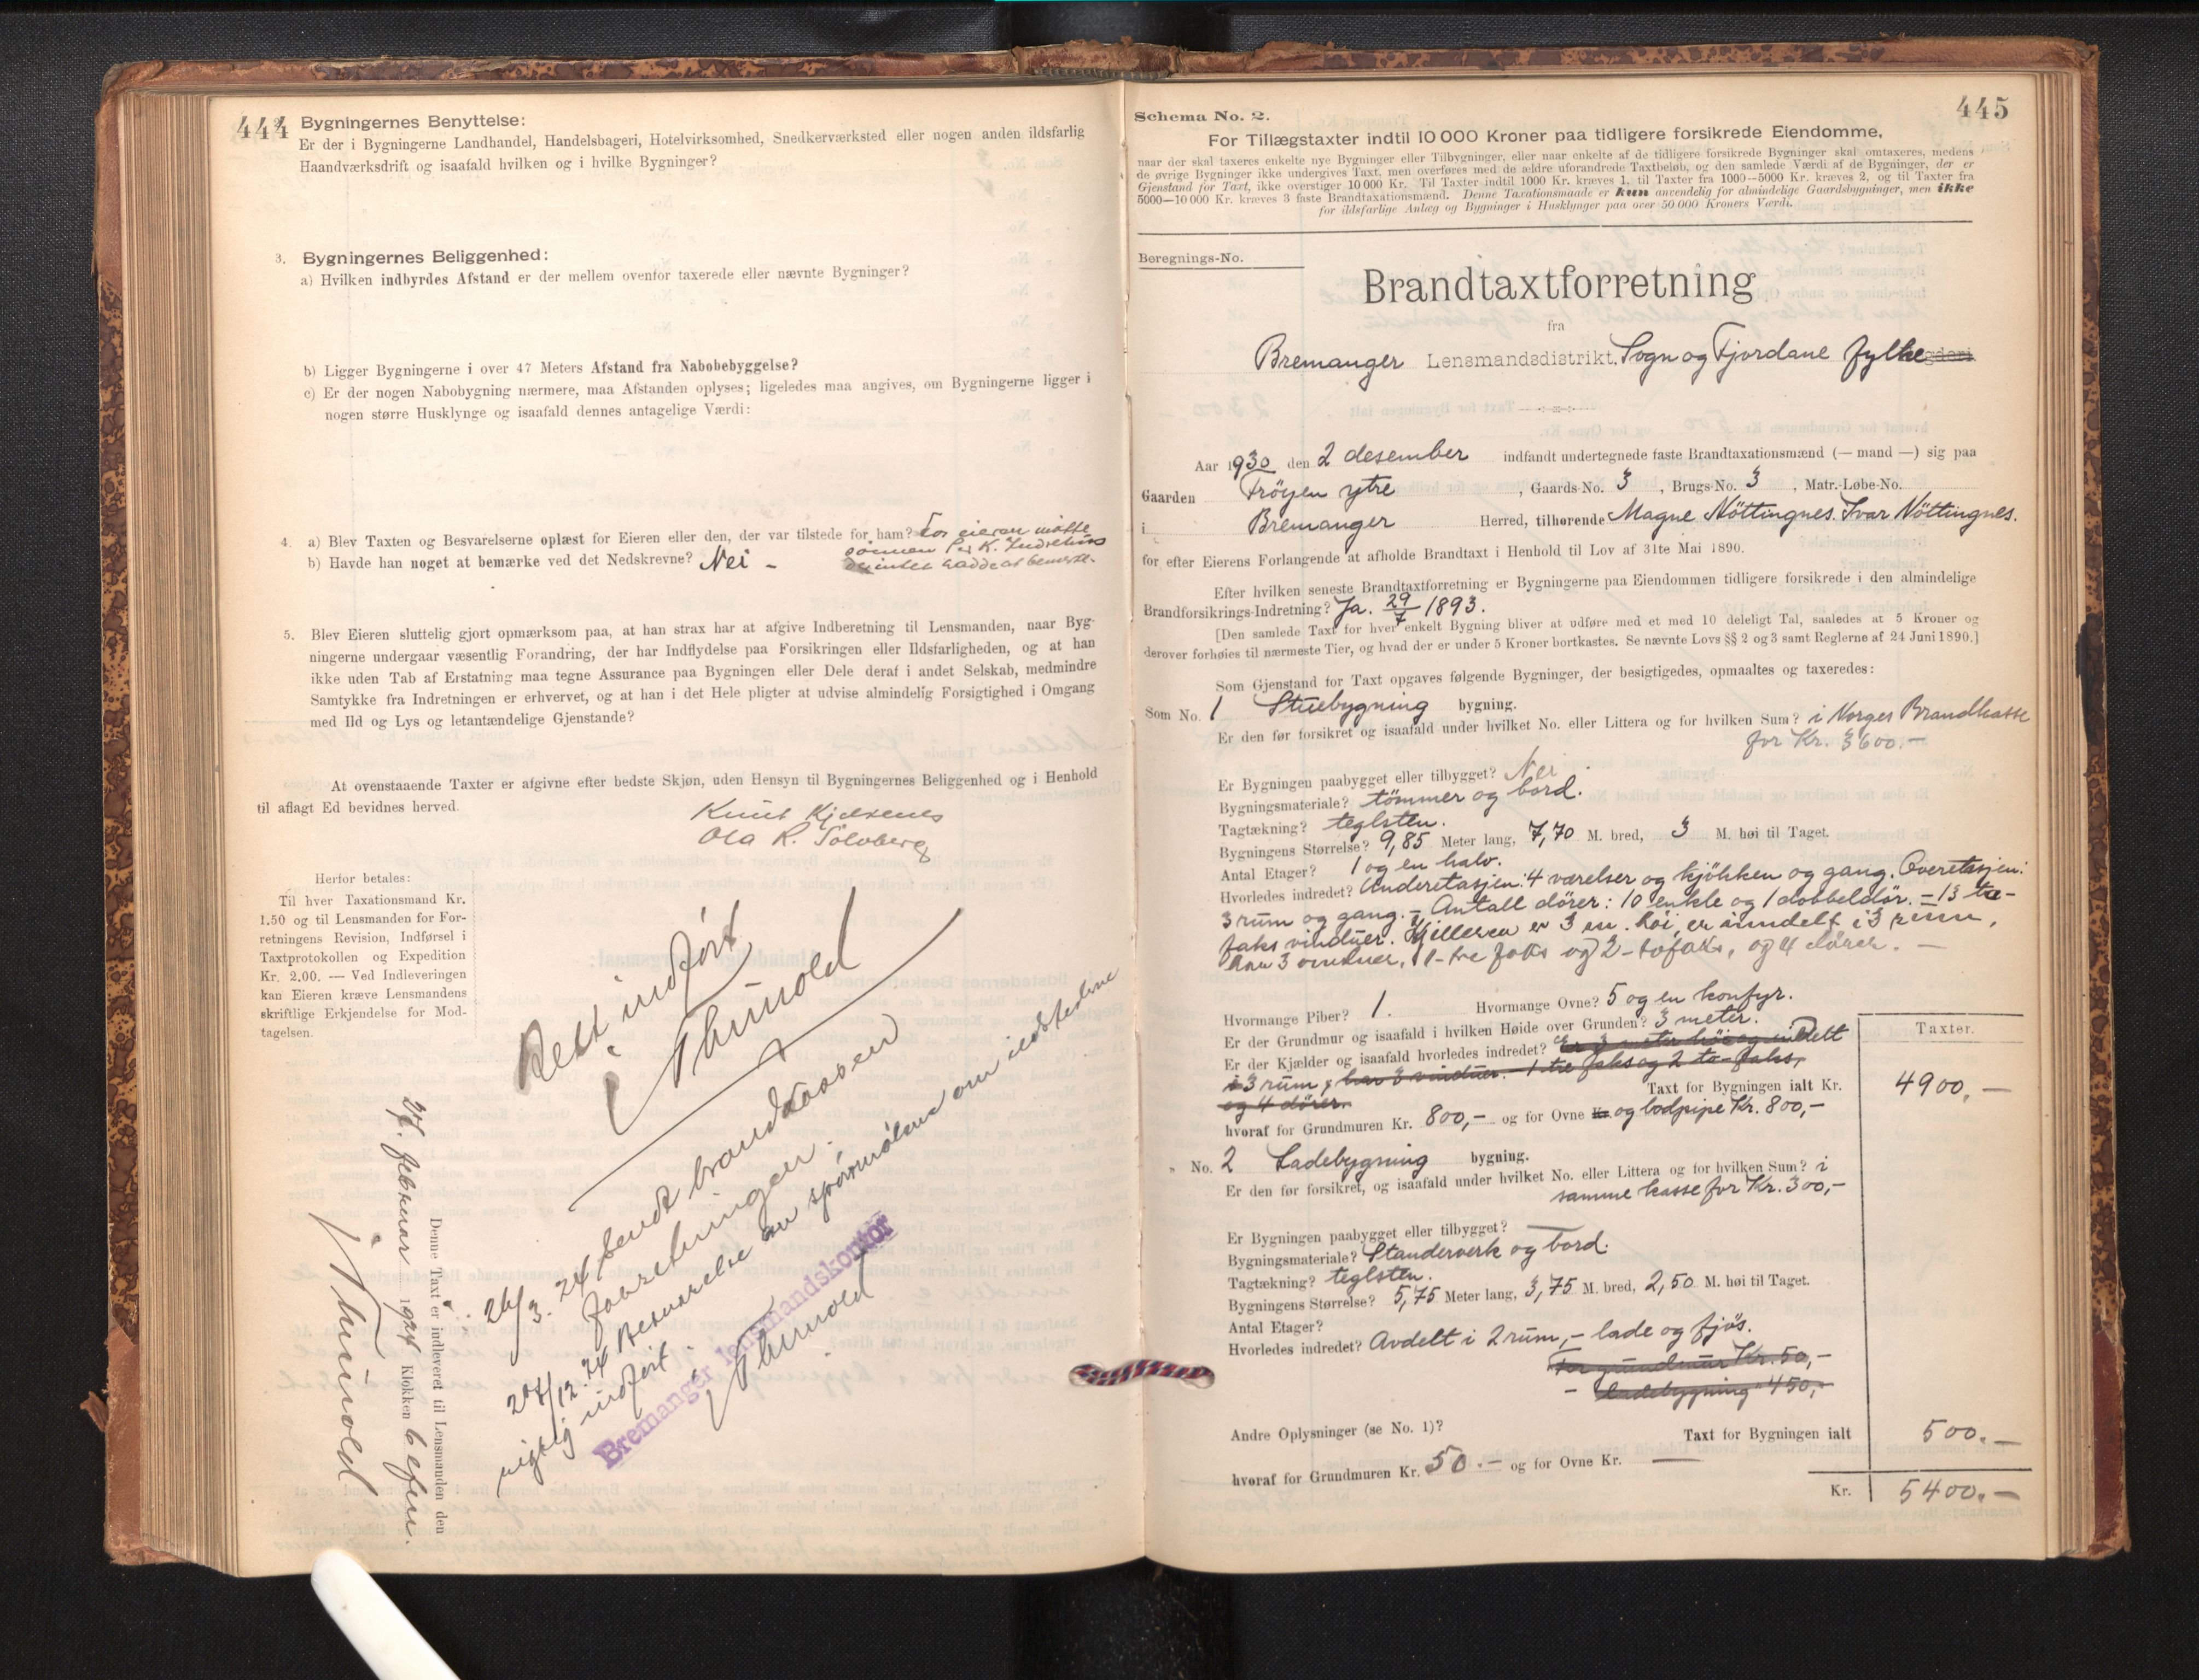 444 Bygningernes Benyttelse:
Er der i Bygningerne Landhandel, Handelsbageri, Hotelvirksomhed, Snedkerværksted eller nogen anden ildsfarlig
Haandværksdrift og isaafald hvilken og i hvilke Bygninger?
3. Bygningernes Beliggenhed:
a) Hvilken indbyrdes Afstand er der mellem ovenfor taxerede eller nævnte Bygninger?
b) Ligger Bygningerne i over 47 Meters Afstand fra Nabobebyggelse?
c) Er der nogen Nabobygning nærmere, maa Afstanden oplyses; ligeledes maa angives, om Bygningerne ligger i
nogen større Husklynge og isaafald dennes antagelige Værdi:
4. a) Blev Taxten og Besvarelserne oplæst for Eieren eller den, der var tilstede for ham? For eieren møtte
sønnen Per K.
b) Havde han noget at bemærke ved det Nedskrevne? Nei - der intet hadde at bemerke.
5. Blev Eieren sluttelig gjort opmærksom paa, at han strax har at afgive Indberetning til Lensmanden, naar Byg-
ningerne undergaar væsentlig Forandring, der har Indflydelse paa Forsikringen eller Ildsfarligheden, og at han
ikke uden Tab af Erstatning maa tegne Assurance paa Bygningen eller Dele deraf i andet Selskab, medmindre
Samtykke fra Indretningen er erhvervet, og at han i det Hele pligter at udvise almindelig Forsigtighed i Omgang
med Ild og Lys og letantændelige Gjenstande?
At ovenstaaende Taxter er afgivne efter bedste Skjøn, uden Hensyn til Bygningernes Beliggenhed og i Henhold
til aflagt Ed bevidnes herved.
Knut
Ola R. Solvberg
Herfor betales:
Til hver Taxationsmand Kr.
1.50 og til Lensmanden for For-
retningens Revision, Indførsel i
Taxtprotokollen og Expedition
Kr. 2.00. — Ved Indleveringen
kan Eieren kræve Lensmandens
skriftlige Erkjendelse for Mod-
tagelsen.
Rett indført
Thunold
26/3. 24 sendt brandkassen
forretningen.
/12. 24 Besvarelse av spørsmålene om ildstedene
rigtig indført
Bremanger lensmandskontor
Thunold
Denne Taxt er indleveret til Lensmanden den
27. februar 1924 Klokken 6 efm.
Thunold
445
Schema No. 2.
For Tillægstaxter indtil 10 000 Kroner paa tidligere forsikrede Eiendomme,
naar der skal taxeres enkelte nye Bygninger eller Tilbygninger, eller naar enkelte af de tidligere forsikrede Bygninger skal omtaxeres, medens
de øvrige Bygninger ikke undergives Taxt, men overføres med de ældre uforandrede Taxtbeløb, og den samlede Værdi af de Bygninger, der er
Gjenstand for Taxt, ikke overstiger 10 000 Kr. Til Taxter indtil 1000 Kr. kræves 1, til Taxter fra 1000—5000 Kr. kræves 2, og til Taxter fra
5000—10 000 Kr. kræves 3 faste Brandtaxationsmænd. Denne Taxationsmaade er kun anvendelig for almindelige Gaardsbygninger, men ikke
for ildsfarlige Anlæg og Bygninger i Husklynger paa over 50 000 Kroners Værdi.
Beregnings-No.
Brandtaxtforretning
fra
Bremanger Lensmandsdistrikt, Sogn og Fjordane fylke
Aar 1930 den 2 desember indfandt undertegnede faste Brandtaxationsmænd (— mand —) sig paa
Gaarden Frøyen ytre, Gaards-No. 3, Brugs-No. 3, Matr.-Løbe-No.
i Bremanger Herred, tilhørende Magne Nöttingnes. Ivar Nöttingnes.
for efter Eierens Forlangende at afholde Brandtaxt i Henhold til Lov af 31te Mai 1890.
Efter hvilken seneste Brandtaxtforretning er Bygningerne paa Eiendommen tidligere forsikrede i den almindelige
Brandforsikrings-Indretning? Ja. 29/7 1893.
[Den samlede Taxt for hver enkelt Bygning bliver at udføre med et med 10 deleligt Tal, saaledes at 5 Kroner og
derover forhøies til nærmeste Tier, og hvad der er under 5 Kroner bortkastes. Se nævnte Lovs §§ 2 og 3 samt Reglerne af 24 Juni 1890.]
Som Gjenstand for Taxt opgaves følgende Bygninger, der besigtigedes, opmaaltes og taxeredes:
Som No. 1 Stuebygning bygning.
Er den før forsikret og isaafald under hvilket No. eller Littera og for hvilken Sum? i Norges Brandkasse
for Kr. 3600.-
Er Bygningen paabygget eller tilbygget? Nei.
Bygningsmateriale? tömmer og bord.
Tagtækning? teglsten.
Bygningens Størrelse? 9,85 Meter lang, 7,70 M. bred, 3 M. høi til Taget.
Antal Etager? 1 og en halv.
Hvorledes indredet? Underetasjen: 4 værelser og kjökken og gang. Overetasjen:
3 rum og gang. - Antall dører: 10 enkle og 1 dobbeldør. - 13 tre-
faks vinduer. Kjelleren er 3 m. høi, er inndelt i 3 rum,
har 3 vinduer, 1-tre faks og 2-tofaks, og 4 dører. -
Hvormange Piber? 1. Hvormange Ovne? 5 og en komfyr.
Er der Grundmur og isaafald i hvilken Høide over Grunden? 3 meter.
Er der Kjælder og isaafald hvorledes indredet? Er 3 meter høi og inndelt
i 3 rum, har 3 vinduer. 1 tre faks og 2 to-faks,
og 4 dører.
Taxter.
Taxt for Bygningen ialt Kr. 4900,-
hvoraf for Grundmuren Kr. 800,- og for Ovne Kr. og lodpipe Kr. 800,-
„ No. 2 Ladebygning bygning.
Er den før forsikret, og isaafald under hvilket No. eller Littera og for hvilken Sum? i
samme kasse for Kr. 300,-
Er Bygningen paabygget eller tilbygget? —
Bygningsmateriale? Standerverk og bord.
Tagtækning? teglsten.
Bygningens Størrelse? 5,75 Meter lang, 3,75 M. bred, 2,50 M. høi til Taget.
Antal Etager?
Hvorledes indredet? Avdelt i 2 rum, - lade og fjøs.
For grundmur Kr. 50,-
- Ladebygning " 450,-
Andre Oplysninger (se No. 1)? Taxt for Bygningen ialt 500.-
hvoraf for Grundmuren Kr. 50.- og for Ovne Kr. —
Kr. 5400.-